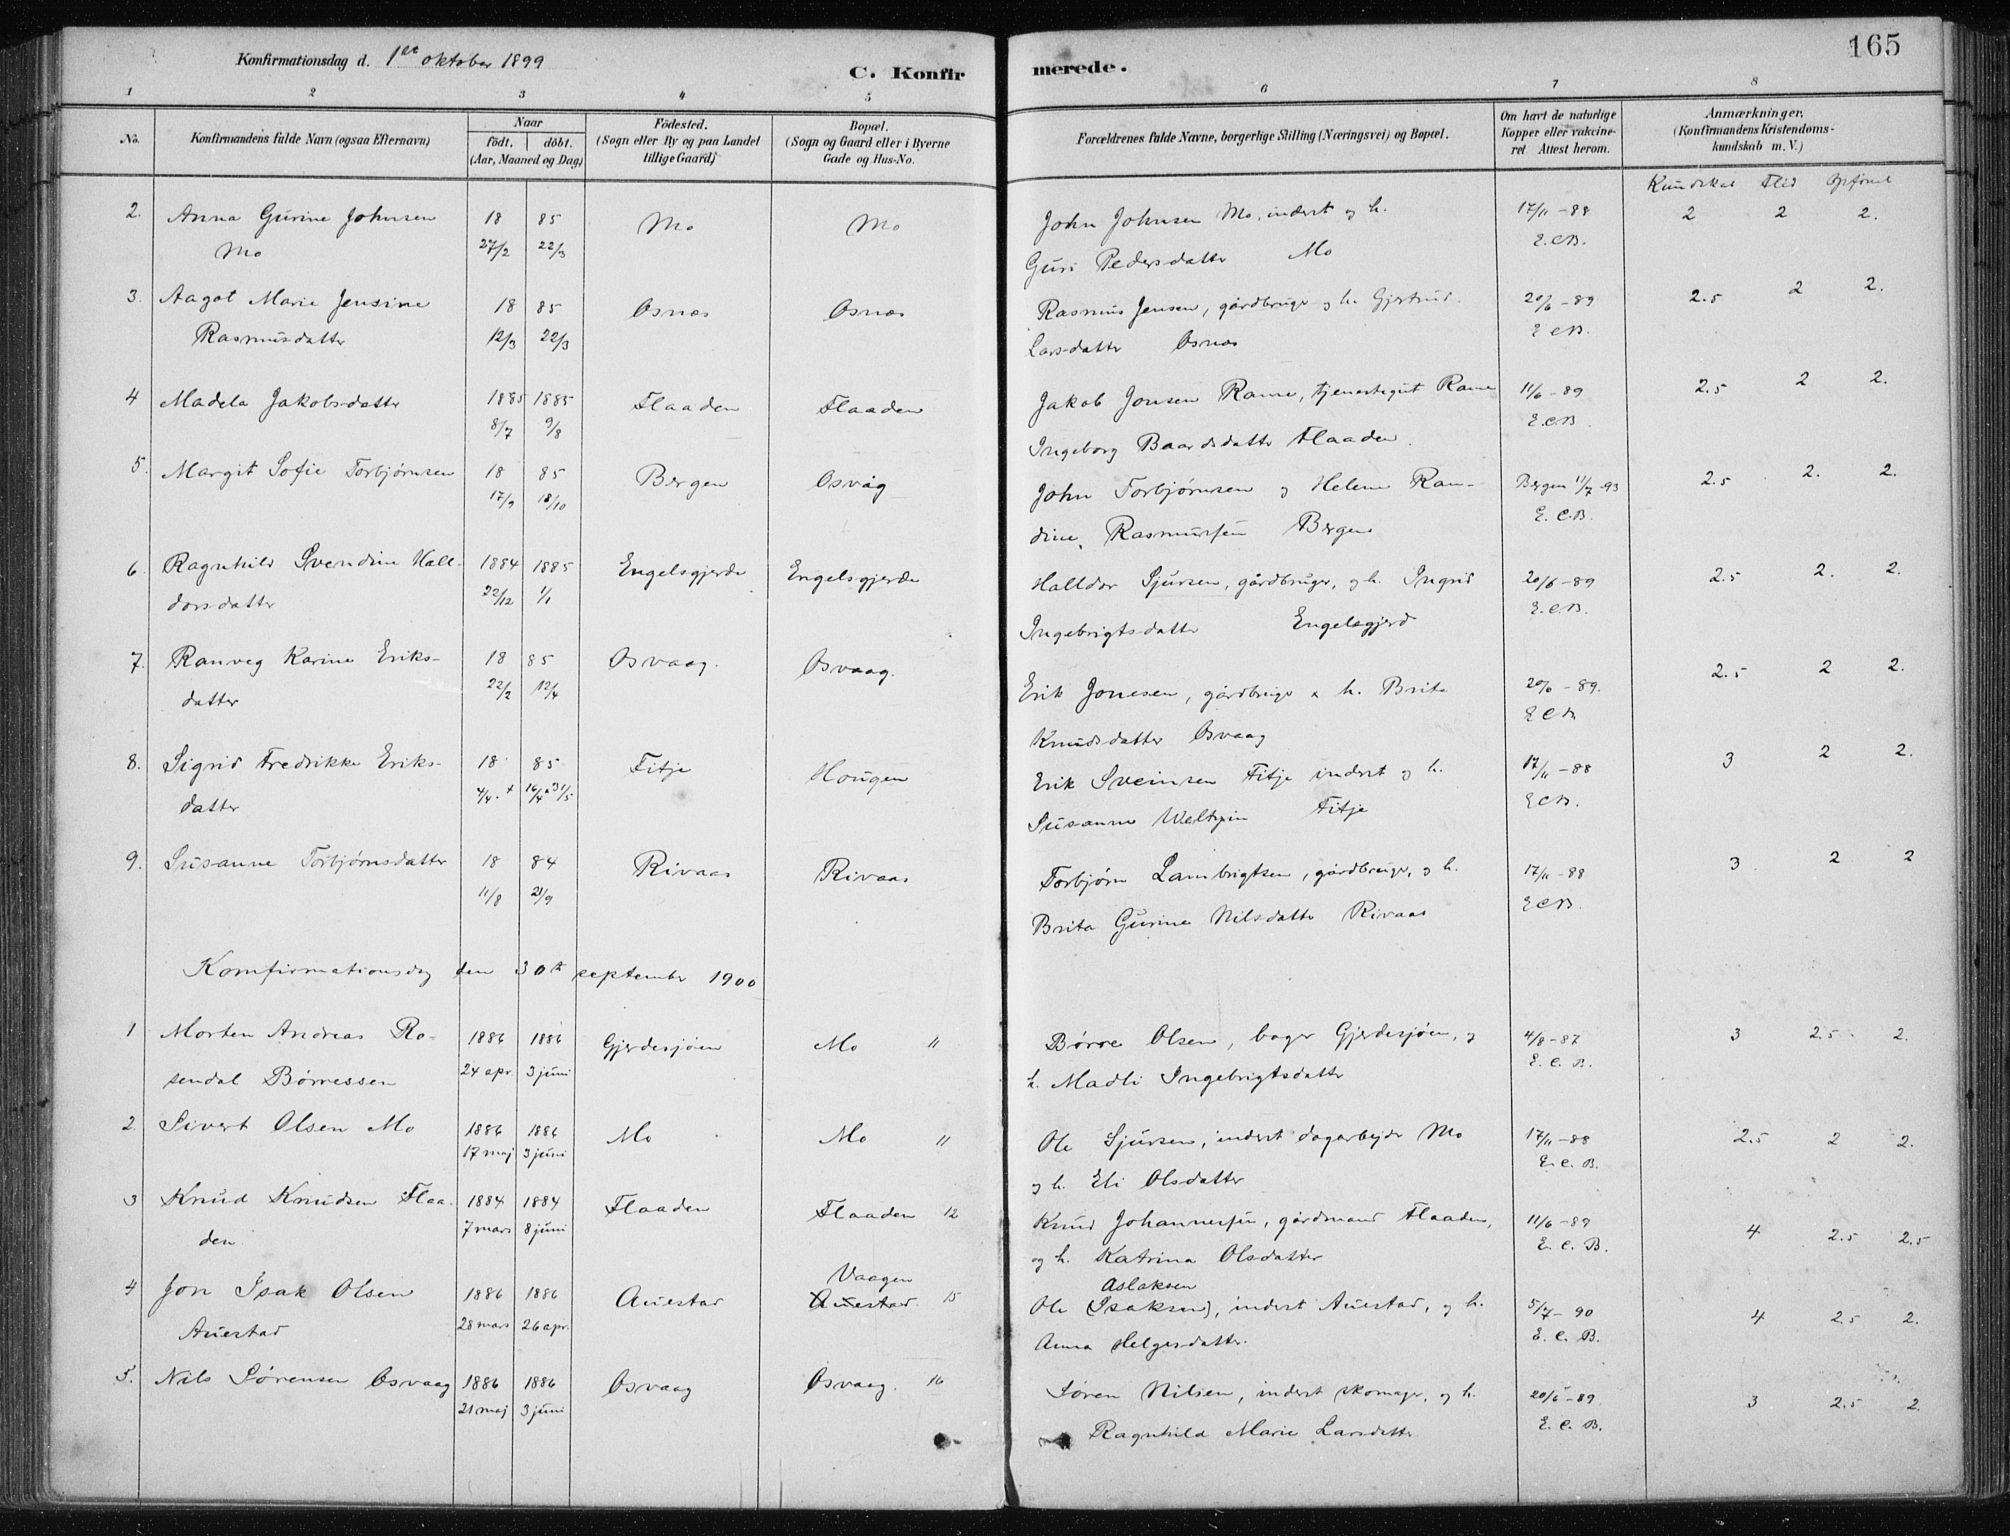 165
Konfirmationsdag d. 1ste oktober 1899
C. Konfirmerede.
1 2 3 4 5 6 7 8
No.
Konfirmandens fulde Navn (ogsaa Efternavn)
Naar
födt. | döbt.
(Aar, Maaned og Dag)
Födested.
(Sogn eller By og paa Landet
tillige Gaard)
Bopæl.
(Sogn og Gaard eller i Byerne
Gade og Hus-No.
Forældrenes fulde Navne, borgerlige Stilling (Næringsvei) og Bopæl.
Om havt de naturlige
Kopper eller vakcine-
ret Attest herom.
Anmærkninger.
(Konfirmandens Kristendoms-
kundskab m. V.)
Kundskab Flid Opførsel
2. Anna Gurine Johnsen 18 85 Mo Mo John Johnsen Mo, inderst og h. 17/11-88 2 2 2.
Mo 27/2 22/3 Guri Pedersdatter Mo E.C.B.
3. Aagot Marie Jensine 18 85 Osnes Osnes Rasmus Jensen, gårdbruger og h. Gjertrud 20/6-89 2.5 2 2.
Rasmusdatter 12/3 22/3 Larsdatter Osnes E.C.B.
4 Madela Jakobsdatter 1885 1885 Flaaden Flaaden Jakob Jonsen Rame, tjenestegut Rame 11/6-89 2.5 2 2.
8/7 9/8 Ingeborg Baardsdatter Flaaden. E.C.B.
5. Margit Sofie Torbjørnsen 18 85 Bergen Osvåg John Torbjørnsen og Helene Ran- Bergen 11/7-93 2.5 2. 2.
17/9 18/10 dine Rasmussen Bergen E.C.B.
6. Ragnhild Svendine Hall- 1884 1885 Engelsgjerde Engelsgjerde Halldor Sjursen, gårdbruger, og h. Ingrid 20/6-89 2.5 2. 2.
dorsdatter 22/12 1/1 Ingebrigtsdatter Engelsgjerd E.C.B.
7. Ranveg Karine Eriks- 18 85 Osvaag. Osvaag. Erik Jonesen, gårdbruger & h. Brita 20/6-89. 2.5 2 2.
datter 22/2 12/4 Knudsdatter Osvaag E.C.B.
8. Sigrid Fredrikke Eriks- 18 85 Fitje Hougen Erik Sveinsen Fitje inderst og h. 17/11-88 3 2 2.
datter 4/4. + 16/4 31/5 Susanne Fitje E.C.B.
9. Susanne Torbjørnsdatter 18 84 Rivaas Rivaas Torbjørn Lambrigtsen, gårdbruger, og h. 17/11-88 3 2 2
11/8 21/9 Brita Gurine Nilsdatter Rivaas E.C.B.
Konfirmationsdag den 30te september 1900
1 Morten Andreas Ro- 1886 1886 Gjerdesjøen Mo " Børre Olsen, bager Gjerdesjøen, og 4/8-87 3 2.5 2.
sendal Børressen 24 apr 3 juni h. Madli Ingebrigtsdatter E.C.B.
2. Sivert Olsen Mo 1886 1886 Mo Mo " Ole Sjursen, inderst dagarbejder Mo 17/11-88 2.5 2 2.
17 maj 3 juni og h. Eli Olsdatter E.C.B.
3 Knud Knudsen Flaa- 1884 1884 Flaaden Flaaden 12 Knud Johannessen, gårdmand Flaaden, 11/6-89 4 2.5 2.5
den. 7 mars 8 juni og h. Katrina Olsdatter E.C.B.
Vaagen Aslaksen
4 Jon Isak Olsen 1886 1886 Auestad Auestad. 15 Ole (Isaksen), inderst Auestad, og h. 5/7-90 4 2.5 2.
Auestad 28 mars 26 apr. Anna Helgesdatter. E.C.B.
5. Nils Sørensen Osvaag 1886 1886 Osvaag Osvaag. 16 Søren Nilsen, inderst skomager, og h. 20/6-89 3 2.5 2.
21 maj 3 juni Ragnhild Marie Larsdatter E.C.B.